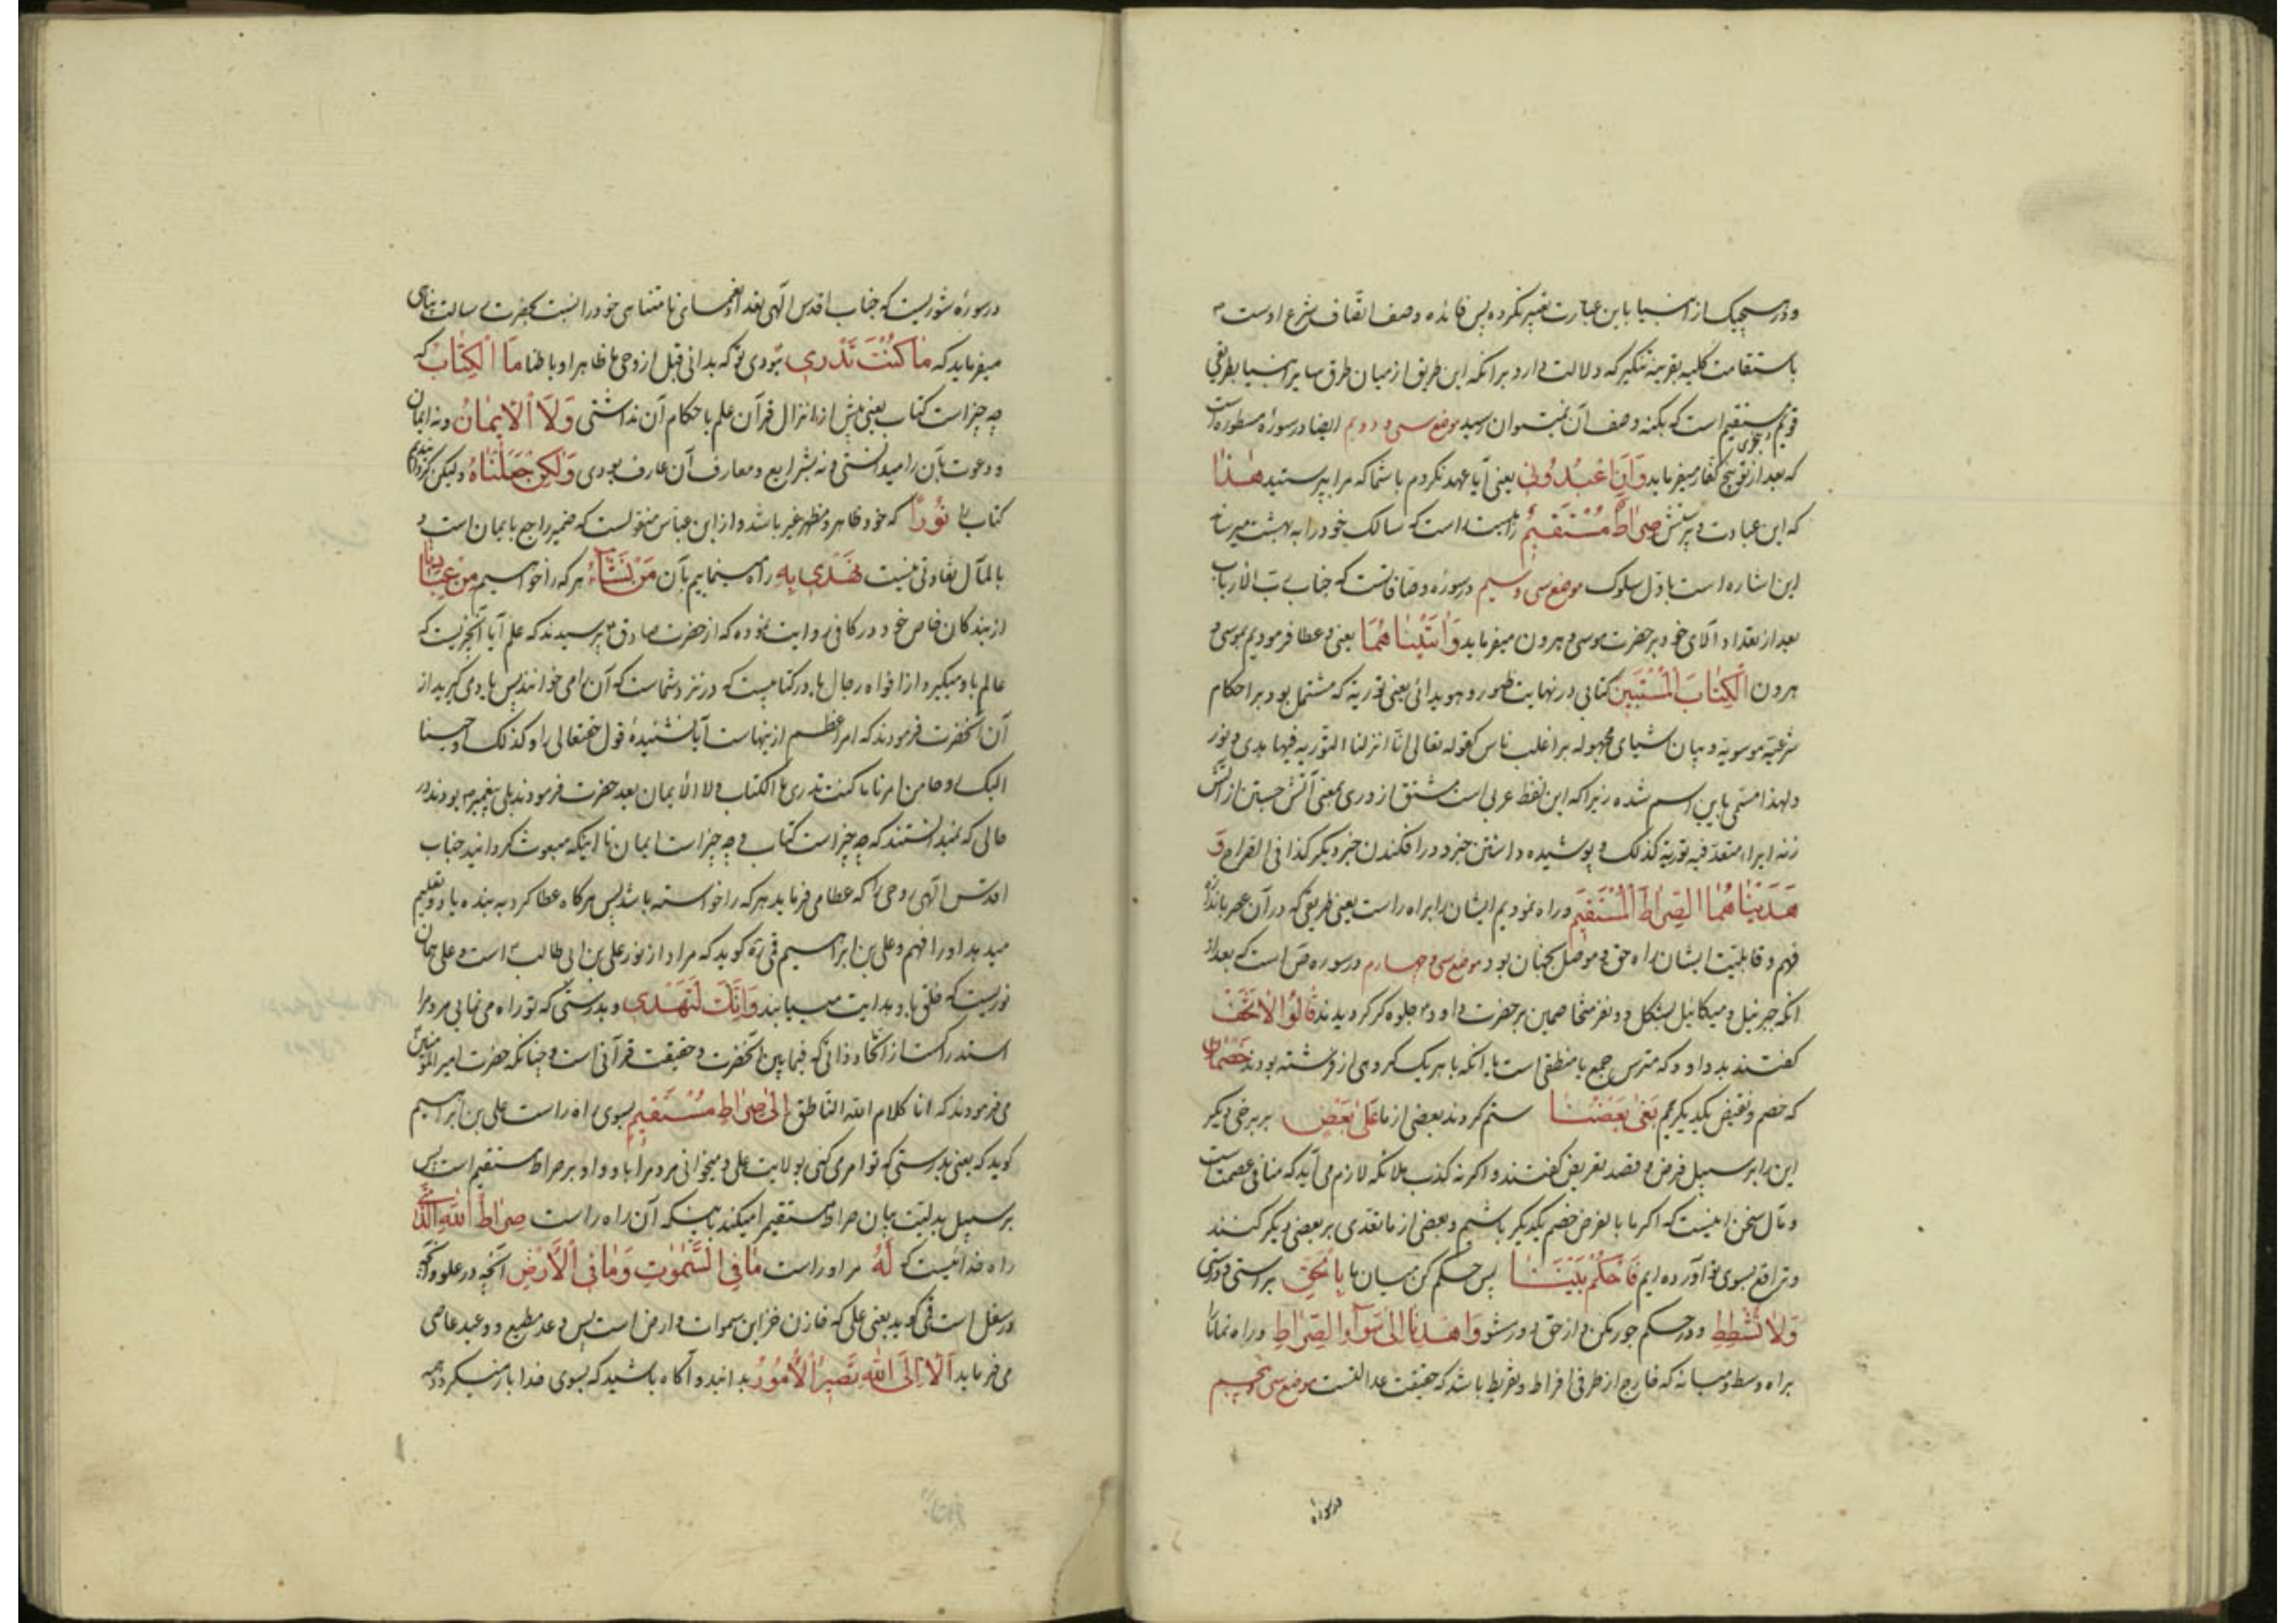 و در هیچیک از انبیا باین عبارت تعبیر نکرده پس فائده وصف اتصاف شرع اوست
باستقامت کلیه بقرینه تنکیر که دلالت دارد بر آنکه این طریق از میان طرق سایر انبیا بطریقی
قویم و مستقیم است که بکنه وصف آن نمیتوان رسید موضع سی و دویم ایضا در سوره مسطوره است
که بعد از توبیخ کفار میفرماید وَاَنِ اعْبُدُونی یعنی آیا عهد نکردم با شما که مرا بپرستید هٰذا
که این عبادت و پرستش صِرٰاطٌ مُسْتَقیمٌ راهیست راست که سالک خود را به بهشت میرساند
این اشاره است باول سلوک موضع سی و سیم در سوره و صافاتست که جناب رب الارباب
بعد از تعداد آلای خود بر حضرت موسی و هرون میفرماید وَاٰتَیْنٰاهُمَا یعنی و عطا فرمودیم موسی و
هرون الْکِتٰابَ الْمُسْتَبینَ کتابی در نهایت ظهور و هویدائی یعنی توریة که مشتمل بود بر احکام
شرعیه موسویه و بیان اشیای مجهوله بر اغلب ناس کقوله تعالی انّا انزلنا التوریة فیها هدی و نور
ولهذا مسمی باین اسم شده زیرا که این لفظ عربی است مشتق از وری بمعنی آتش جستن از آتش
زنه ابراء متعد فیه توریة کذلک و پوشیده داشتن خبر و در افکندن خبر دیگر کذا فی القراح وَ
هَدَیْنٰاهُمَا الصِّرٰاطَ الْمُسْتَقیمَ و راه نمودیم ایشان را براه راست یعنی طریقی که در آن عصر باندازه
فهم و قابلیت ایشان راه حق و موصل بجهان بود موضع سی و چهارم در سوره ص است که بعد از
آنکه جبرئیل و میکائیل بشکل دو نفر متخاصمین بر حضرت داود جلوه گر گردیدند قٰالُوا لاٰ تَخَفْ
گفتند بداود که مترس جمع یا منطقی است یا آنکه با هر یک گروهی از فرشته بودند خَصْمٰانِ
که خصم و نقیض یکدیگریم بَغیٰ بَعْضُنٰا ستم کردند بعضی از ما عَلیٰ بَعْضٍ بر برخی دیگر
این را بر سبیل فرض و قصد تعریض گفتند و اگر نه کذب ملائکه لازم می آید که منافی عصمت است
و مآل سخن اینست که اگر ما بالفرض خصم یکدیگر باشیم و بعضی از ما تعدی بر بعضی دیگر کنند
و ترافع بسوی تو آورده ایم فَاحْکُمْ بَیْنَنٰا پس حکم کن میان ما بِالْحَقِّ براستی و درستی
وَلاٰ تُشْطِطْ و در حکم جور مکن و از حق دور مشو وَاهْدِنٰا اِلیٰ سَوٰآءِ الصِّرٰاطِ و راه نما ما را
براه وسط و میانه که خارج از طرفی افراط و تفریط باشد که حقیقت عدالتست موضع سی و پنجم
در سوره
در سوره شوریست که جناب اقدس الهی بعد از نعمای نامتناهی خود را نسبت بحضرت رسالت پناهی
میفرماید که مٰا کُنْتَ تَدْری نبودی تو که بدانی قبل از وحی ما ظاهرا و باطنا مَا الْکِتٰابُ که
چه چیز است کتاب یعنی پیش از انزال قرآن علم باحکام آن نداشتی وَلاَ الْاٖیمٰانُ و نه ایمان
و دعوت بآن را میدانستی و نه بشرایع و معارف آن عارف بودی وَلٰکِنْ جَعَلْنٰاهُ ولیکن گردانیدیم
کتاب را نُورًا که خود ظاهر و مظهر غیر باشد و از ابن عباس منقولست که ضمیر راجع بایمان است و
بالمآل تفاوتی نیست نَهْدی بِهِ راه مینماییم بآن مَنْ نَشٰآءُ هر که را خواهیم مِنْ عِبٰادِنٰا
از بندگان خاص خود در کافی روایت نموده که از حضرت صادق پرسیدند که علم آیا آنچیزیست که
عالم یاد میگیرد از افواه رجال یا در کتابیست که در نزد شماست که آن را می خوانند پس یاد می گیرید از
آن آنحضرت فرمودند که امر اعظم از ینهاست آیا نشنیدهٔ قول حقتعالی را و کذلک اوحینا
الیک روحا من امرنا ما کنت تدری ما الکتاب و لا الایمان بعد حضرت فرمودند بلی پیغمبر بودند در
حالی که نمیدانستند که چه چیز است کتاب و چه چیز است ایمان تا اینکه مبعوث گردانید جناب
اقدس الهی روحی را که عطا می فرماید هر که را خواسته باشد پس هرگاه عطا کرد به بنده یاد و تعلیم
میدهد او را فهم و علی بن ابراهیم قمی ره گوید که مراد از نور علی بن ابی طالب است و علی همان
نوریست که خلق باو هدایت مییابند وَاِنَّکَ لَتَهْدی و بدرستی که تو راه می نمایی مردم را
استدراکست از اتحاد ذاتی که فیما بین آنحضرت و حقیقت قرآنی است و چنانکه حضرت امیرالمؤمنین
می فرمودند که انا کلام الله الناطق اِلیٰ صِرٰاطٍ مُسْتَقیمٍ بسوی راه راست علی بن ابراهیم
گوید که یعنی بدرستی که تو امر می کنی بولایت علی و میخوانی مردم را باو و او بر صراط مستقیم است پس
بر سبیل بدلیت بیان صراط مستقیم را میکند باینکه آن راه راست صِرٰاطِ اللّٰهِ الَّذی
راه خدائیست که لَهُ مر او راست مٰا فِی السَّمٰوٰتِ وَمٰا فِی الْاَرْضِ آنچه در علو و آنچه
در سفل است قمی گوید یعنی علی که خازن خزاین سموات و ارض است پس وعد مطیع و وعید عاصی
می فرماید اَلاٰ اِلَی اللّٰهِ تَصیرُ الْاُمُورُ بدانید و آگاه باشید که بسوی خدا باز میگردد همه